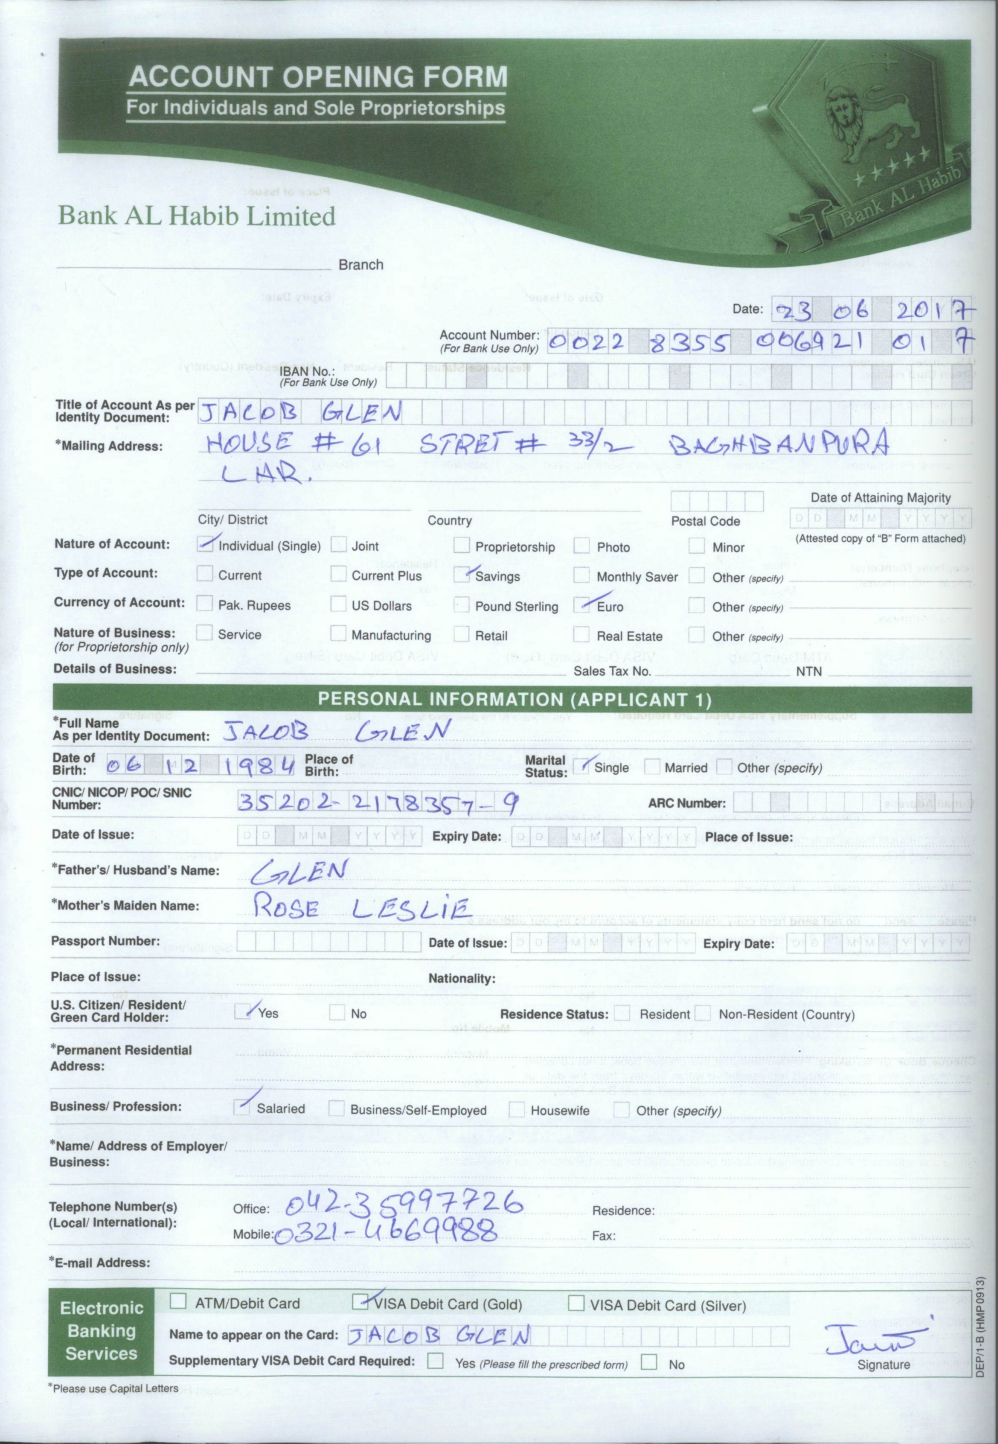 ACCOUNT OPENING FORM
For Individuals and Sole Proprietorships
Bank AL Habib
Bank AL Habib Limited
Branch
Date: 23 06 2017
Account Number: 0022 8355 006921 01 7
(For Bank Use Only)
IBAN No.:
(For Bank Use Only)
Title of Account As per JACOB GLEN
Identity Document:
*Mailing Address: HOUSE # 61 STRET # 33/2 BAGHBANPURA
LHR.
Date of Attaining Majority
D D M M Y Y Y Y
City/ District Country Postal Code
(Attested copy of "B" Form attached)
Nature of Account: Individual (Single) Joint Proprietorship Photo Minor
Type of Account: Current Current Plus Savings Monthly Saver Other (specify)
Currency of Account: Pak. Rupees US Dollars Pound Sterling Euro Other (specify)
Nature of Business: Service Manufacturing Retail Real Estate Other (specify)
(for Proprietorship only)
Details of Business: Sales Tax No. NTN
PERSONAL INFORMATION (APPLICANT 1)
*Full Name
As per Identity Document: JACOB GLEN
Date of Birth: 06 12 1984 Place of Birth: Marital Status: Single Married Other (specify)
CNIC/ NICOP/ POC/ SNIC
Number: 35202-2178357-9 ARC Number:
Date of Issue: D D M M Y Y Y Y Expiry Date: D D M M Y Y Y Y Place of Issue:
*Father's/ Husband's Name: GLEN
*Mother's Maiden Name: ROSE LESLIE
Passport Number: Date of Issue: D D M M Y Y Y Y Expiry Date: D D M M Y Y Y Y
Place of Issue: Nationality:
U.S. Citizen/ Resident/
Green Card Holder: Yes No Residence Status: Resident Non-Resident (Country)
*Permanent Residential
Address:
Business/ Profession: Salaried Business/Self-Employed Housewife Other (specify)
*Name/ Address of Employer/
Business:
Telephone Number(s) Office: 042-35997726 Residence:
(Local/ International): Mobile: 0321-4669988 Fax:
*E-mail Address:
Electronic Banking Services
ATM/Debit Card VISA Debit Card (Gold) VISA Debit Card (Silver)
Name to appear on the Card: JACOB GLEN
Supplementary VISA Debit Card Required: Yes (Please fill the prescribed form) No
Signature
*Please use Capital Letters
DEP/1-B (HMP0913)